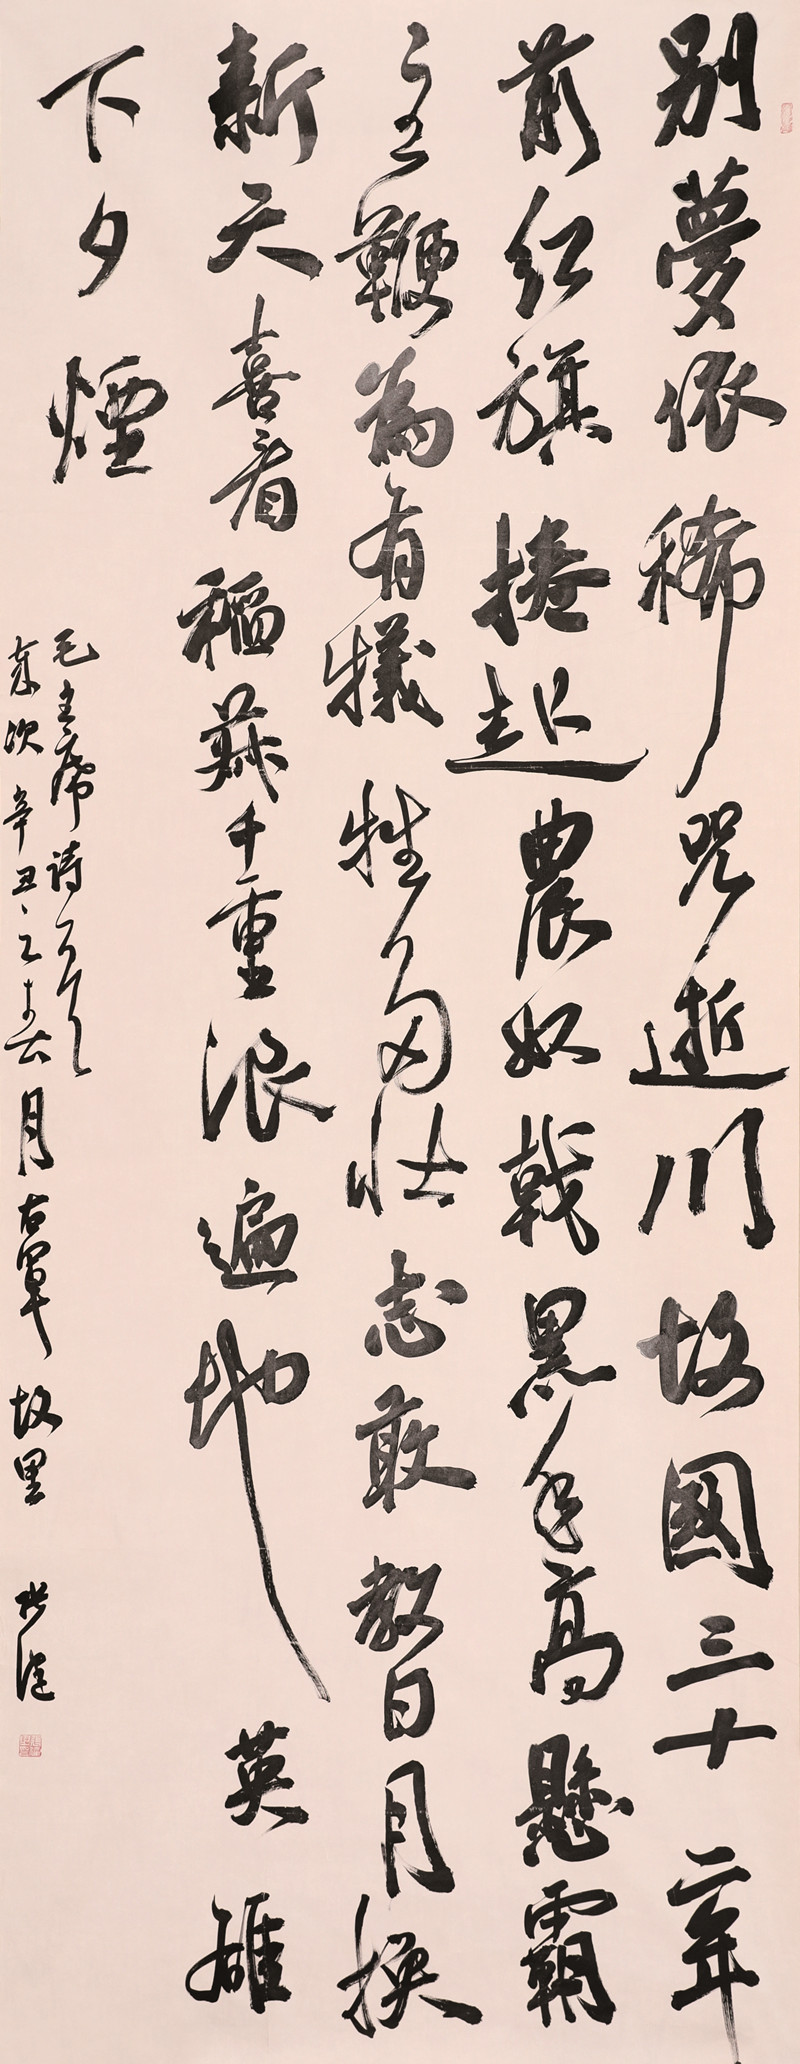 别夢依稀咒逝川故國三十二年
前红旗捲起農奴戟黑手高懸霸
主鞭為有犧牲多壮志敢教日月換
新天喜看稻菽千重浪遍地英雄
下夕煙
毛主席诗
歲次辛丑之 六月右軍故里